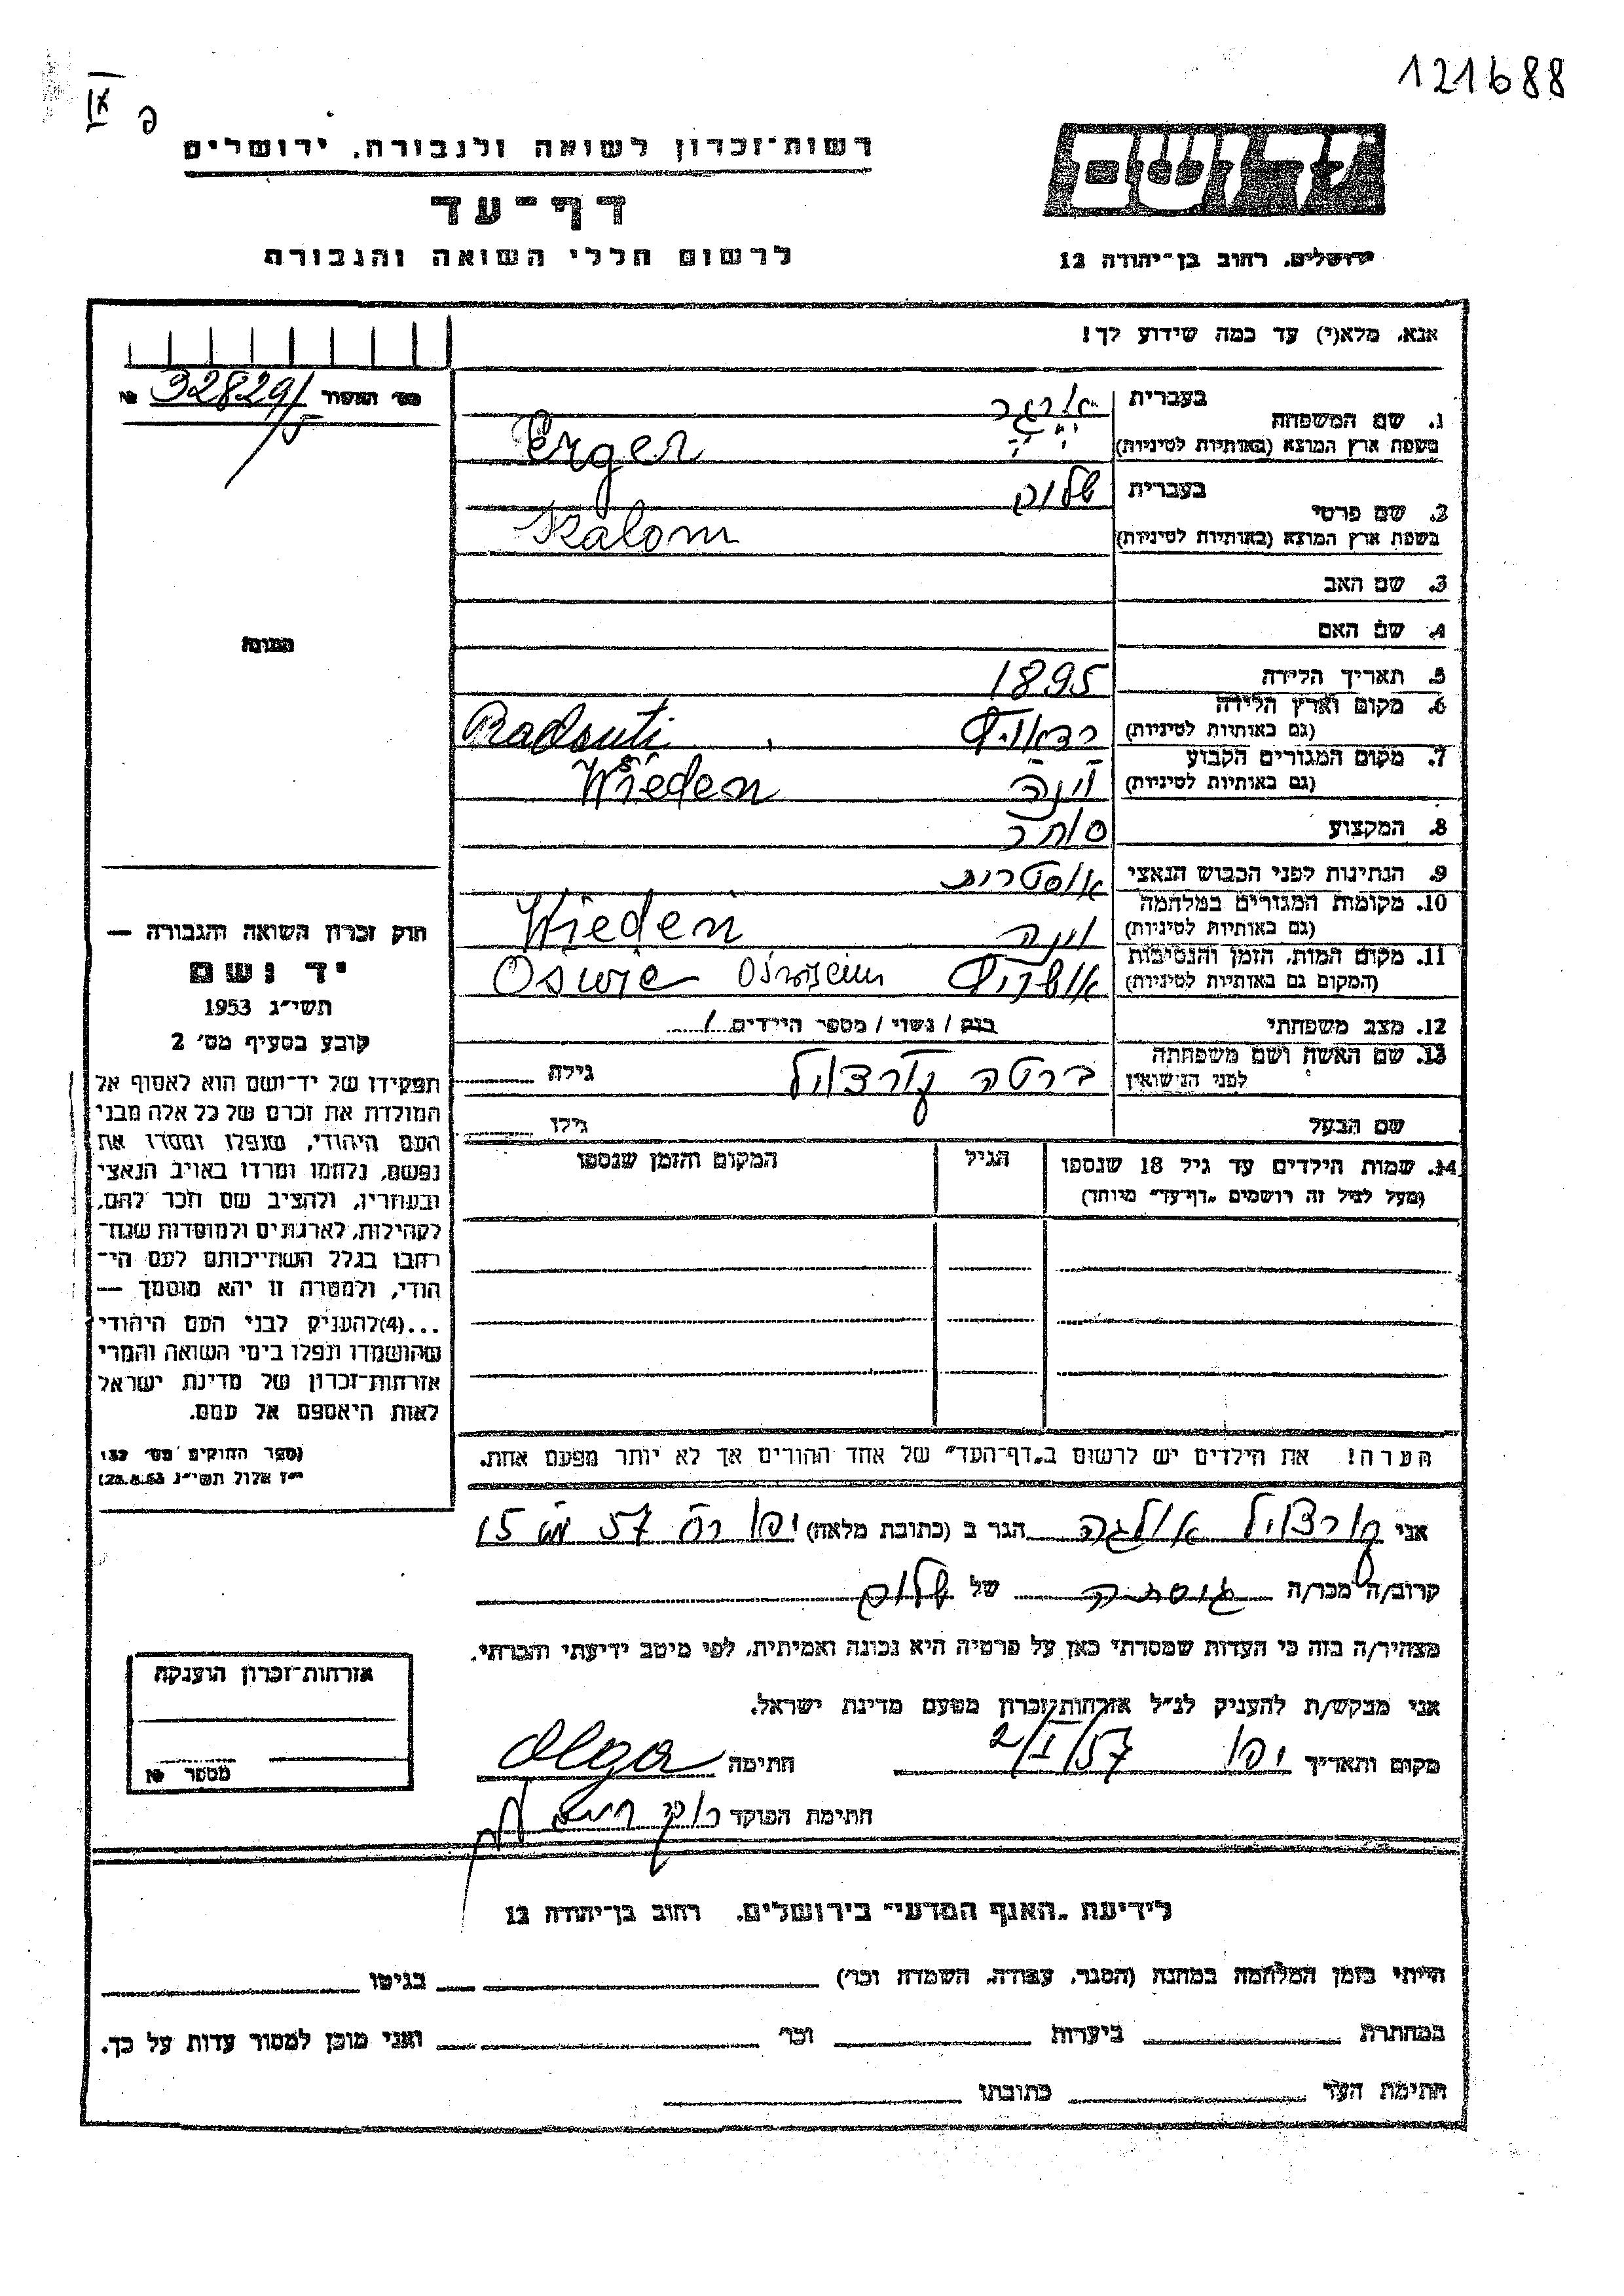 121688
פ
רשות-זכרון לשואה ולגבורה, ירושלים
דף-עד
לרשום חללי השואה והגבורה
יד ושם
ירושלים, רחוב בן-יהודה 12
אנא, מלא(י) עד כמה שידוע לך!
מס' האשור 32829/ №
1. שם המשפחה
בעברית
בשפת ארץ המוצא (באותיות לטיניות) Perger
2. שם פרטי
בעברית שלום
בשפת ארץ המוצא (באותיות לטיניות) Szalom
3. שם האב
4. שם האם
5. תאריך הלידה 1895
6. מקום וארץ הלידה
(גם באותיות לטיניות) רדאוץ Radauti
7. מקום המגורים הקבוע
(גם באותיות לטיניות) וינה Wieden
8. המקצוע סוחר
9. הנתינות לפני הכבוש הנאצי אוסטרית
10. מקומות המגורים במלחמה
(גם באותיות לטיניות) וינה Wieden
11. מקום המות, הזמן והנסיבות
(המקום גם באותיות לטיניות) אושויץ
12. מצב משפחתי רווק / נשוי / מספר הילדים 1
13. שם האשה ושם משפחתה
לפני הנישואין ברטה גילה
שם הבעל גילו
14. שמות הילדים עד גיל 18 שנספו הגיל המקום והזמן שנספו
(מעל לגיל זה רושמים "דף-עד" מיוחד)
הערה! את הילדים יש לרשום ב"דף-העד" של אחד ההורים אך לא יותר מפעם אחת.
תמונה
חוק זכרון השואה והגבורה —
יד ושם
תשי"ג 1953
קובע בסעיף מס' 2
תפקידו של יד-ושם הוא לאסוף אל
המולדת את זכרם של כל אלה מבני
העם היהודי, שנפלו ומסרו את
נפשם, נלחמו ומרדו באויב הנאצי
ובעוזריו, ולהציב שם וזכר להם,
לקהילות, לארגונים ולמוסדות שנח־
רבו בגלל השתייכותם לעם הי־
הודי, ולמטרה זו יהא מוסמך —
...(4) להעניק לבני העם היהודי
שהושמדו ונפלו בימי השואה והמרי
אזרחות-זכרון של מדינת ישראל
לאות היאספם אל עמם.
(ספר החוקים מס' 132
י"ז אלול תשי"ג 28.8.53)
אני אולגה הגר ב (כתובת מלאה) יפו רח 57 מס 15
קרוב/ה מכר/ה של שלום
מצהיר/ה בזה כי העדות שמסרתי כאן על פרטיה היא נכונה ואמיתית, לפי מיטב ידיעתי והכרתי.
אני מבקש/ת להעניק לנ"ל אזרחות-זכרון מטעם מדינת ישראל.
מקום ותאריך יפו 2/I/57 חתימה Olga
חתימת הפוקד
אזרחות-זכרון הוענקה
מספר №
לידיעת "האגף המדעי" בירושלים, רחוב בן-יהודה 12
הייתי בזמן המלחמה במחנה (הסגר, עבודה, השמדה וכו') בגיטו
במחתרת ביערות וכו' ואני מוכן למסור עדות על כך.
חתימת העד כתובתו